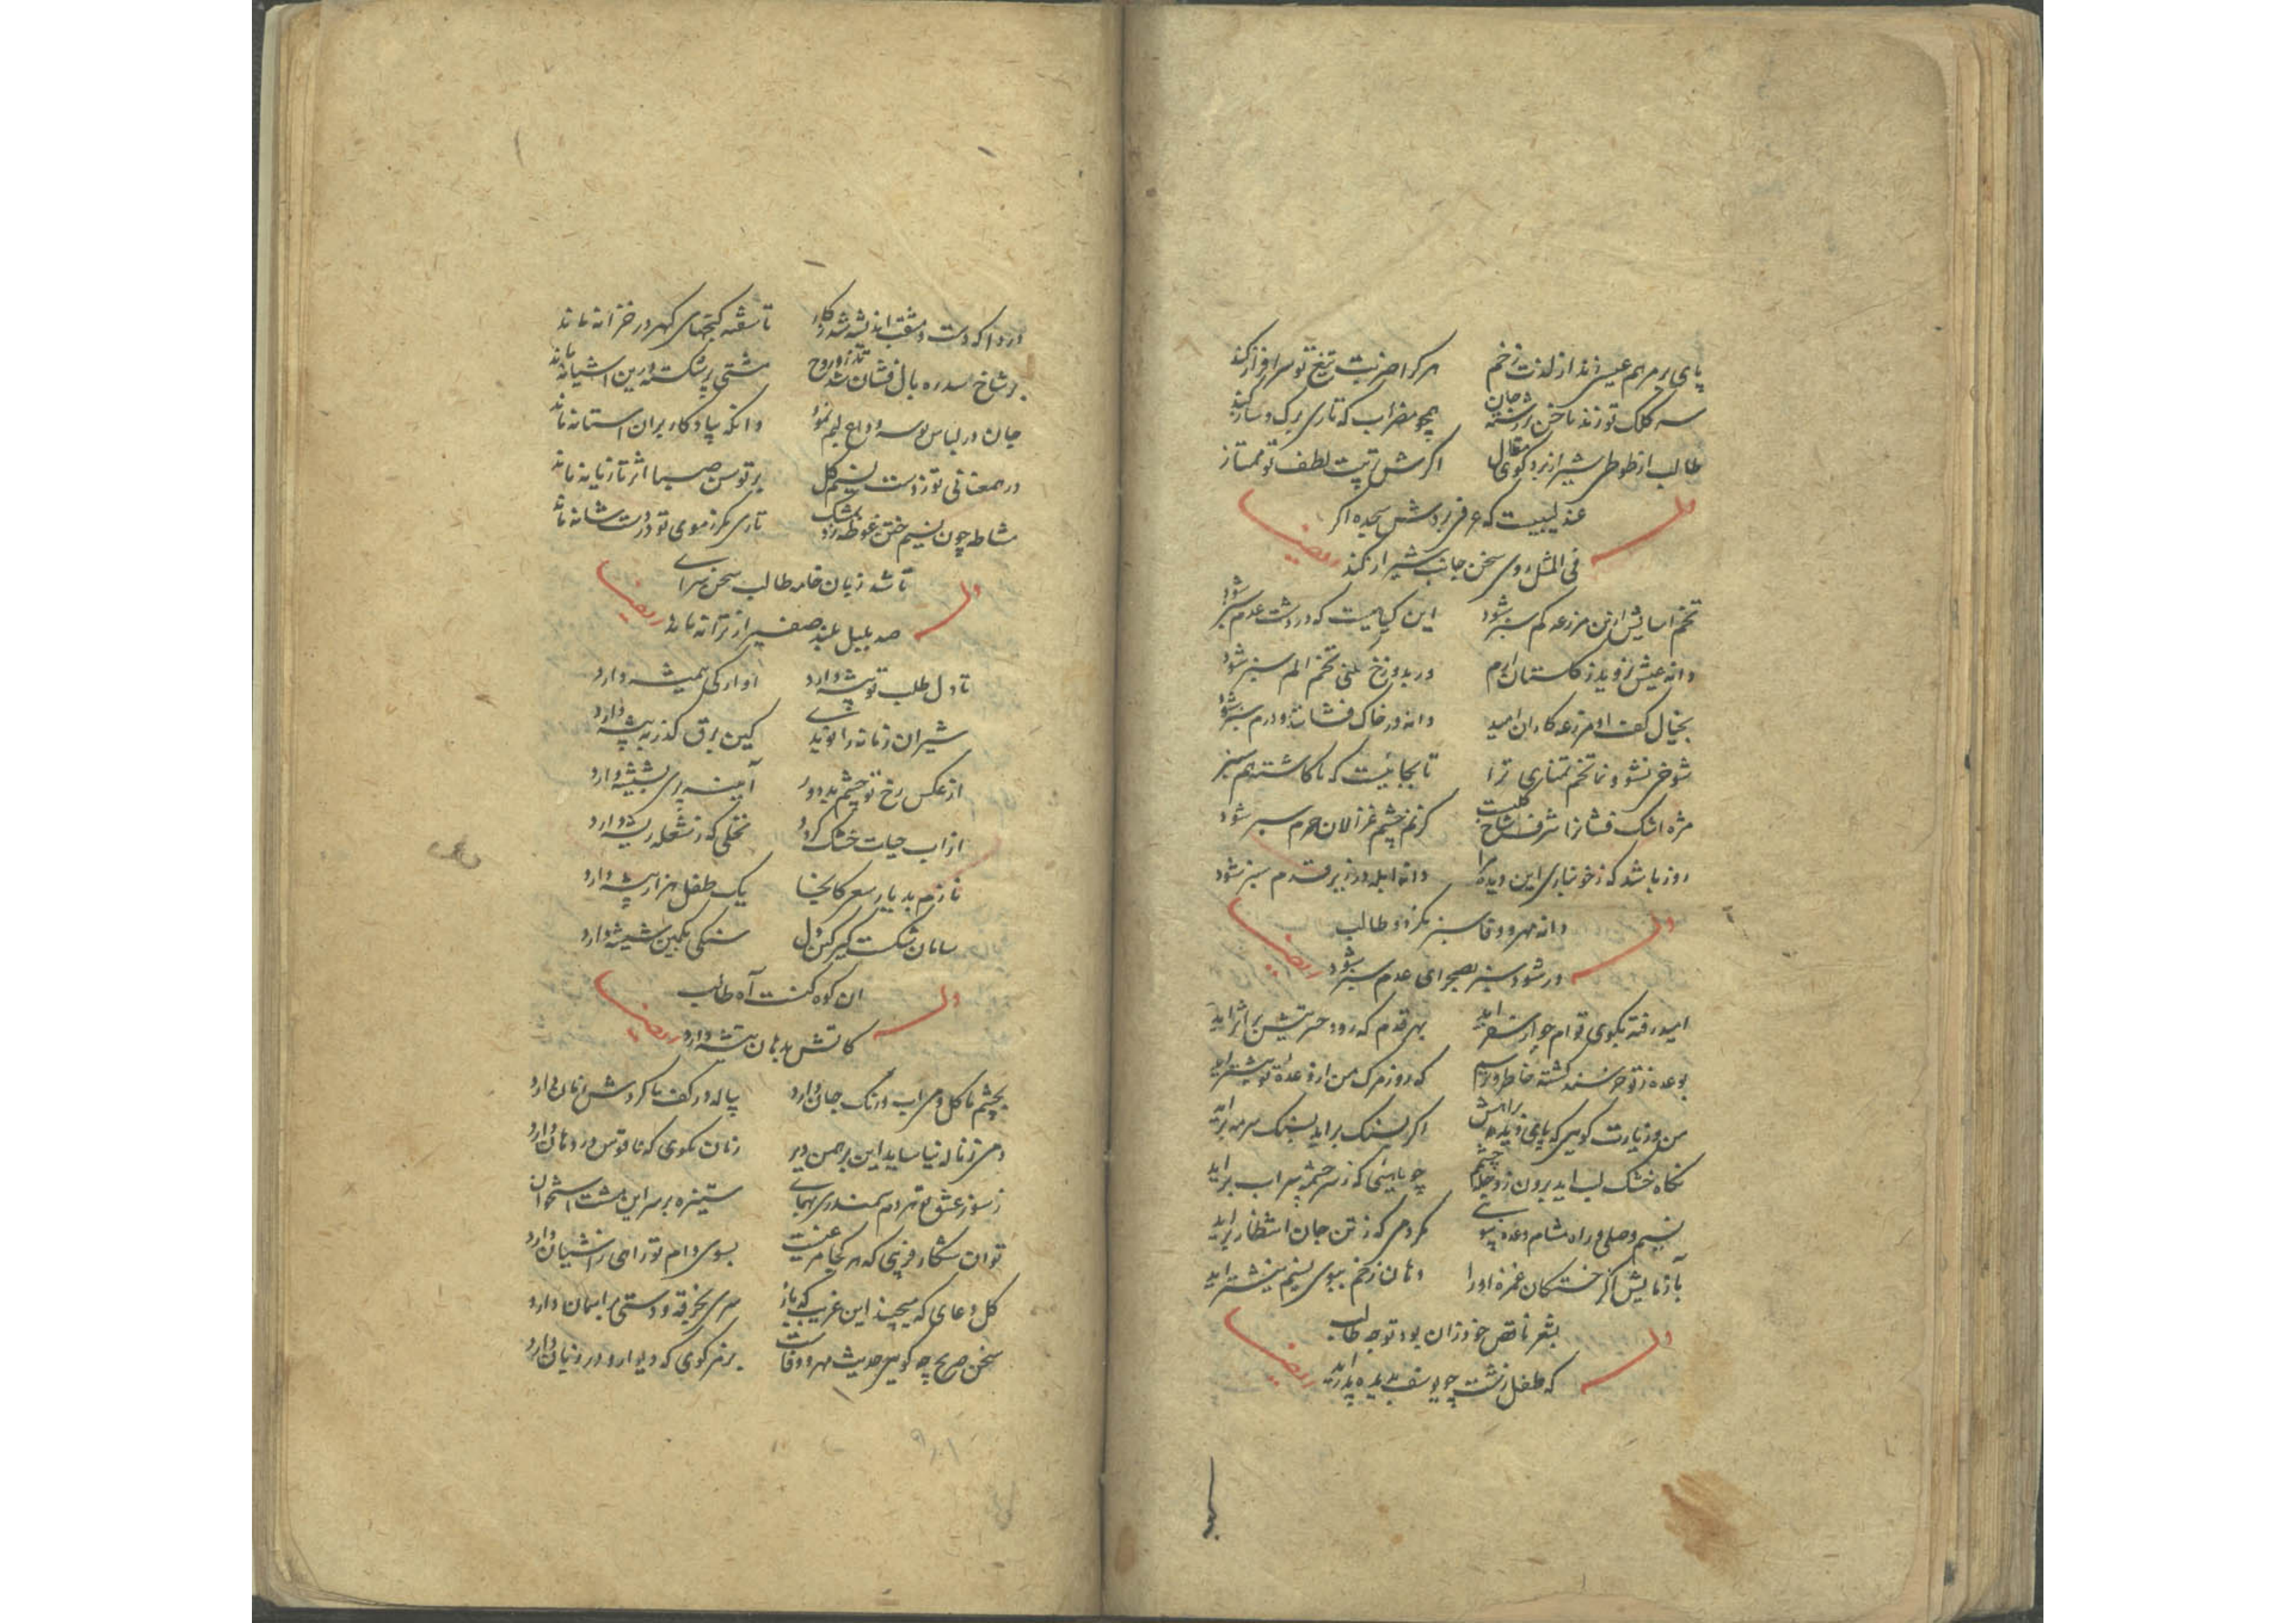 پای بر مرهم عیسی زند از لذت زخم هر کرا ضربت تیغ تو سرافراز کند
سه کلک تو زند ناخن بر رشته جان همچو مضراب که تاری برک و ساز کند
طالب از طوطی شیراز برد کوی مقال اکرش تربیت لطف تو ممتاز
عندلیبیست که عرفی بردش سجده اکر
وله
فی المثل روی سخن جانب شیراز کند
ایضا
تخم اسایش ازین مزرعه کم سبز شود این کیاهیست که در دشت عدم سبز شود
دانه عیش نروید ز کلستان ارم ور بدوزخ فکنی تخم الم سبز شود
بخیال کف او مزرعه کاران امید دانه در خاک فشانند و درم سبز شود
شوخی نشو و نما تخم تمنای ترا تا بجائیست که ناکاشته هم سبز
مژه اشک فشانرا شرف شاخ کلیست کز نم چشم غزالان حرم سبز شود
روز باشد که ز خونباری این دیده مرا دانه ابله در زیر قدم سبز شود
دانه مهر و وفا سبز نکردد طالب
وله
ور شود سبز بصحرای عدم سبز شود
ایضا
امید رفته بکوی تو ام ز سفر اید بهر قدم که رود حسرتیش بر اثر اید
بوعده ز تو خرسند کشته خاطر و ترسم که روز مرک من از وعده تو پیشتر اید
من و زیارت کویی که پای دیده براهش اکر بسنک براید بسنک سرمه براید
نکاه خشک لب اید برون ز چشم چو ماهیئی که ز سرچشمه سراب براید
نسیم وصلی و راه مشام وعده بینی مکر دمی که ز تن جان انتظار براید
بازمایش اکر خستکان غمزه او را دهان زخم ببوی بنیشتر اید
بشعر ناقص خود زان بود توجه طالب
وله
که طفل زشت چو یوسف بدیده پدر اید
ایضا
دردا که دست و اندیشه شد ز کار ناسفته کنجهای کهر در خزانه ماند
بر شاخ سدره بال فشان شد تذرو روح مشتی پر شکسته درین اشیانه ماند
جان در لباس بوسه وداع لبم نمود وانکه بیادکار بران استانه ماند
در همعنانی تو ز دست نسیم کل بر توسن صبا اثر تازیانه ماند
مشاطه چون نسیم ختن غوطه زد بمشک تاری مکر ز موی تو در دست شانه ماند
تا شد زبان خامه طالب سخن سرای
وله
صد بلبل بلند صفیر از ترانه ماند
ایضا
تا دل طلب تو پیشه دارد اوارکی همیشه دارد
شیران زمانه را نویدی کین برق کذر به بیشه دارد
از عکس رخ تو چشم بد دور آیینه پری بشیشه دارد
از اب حیات خشک کردد نخلی که ز شعله ریشه دارد
نازم بدیار سعر کانجا یک طفل هزار پیشه دارد
سامان شکست کیر کین دل سنکی بکمین شیشه دارد
ان کوه کنست آه طالب
وله
کاتش بدهان تیشه دارد
ایضا
بچشم ما کل و می اب و رنک جان دارد پیاله در کف ما کردش زمان دارد
دمی ز ناله نیاساید این برهمن دیر زبان مکوی که ناقوس در دهان دارد
ز سوز عشق تو هر دم سمندری بهمای ستیزه بر سر این مشت استخوان
توان شکار فریبی که هر کجا مرغیست بسوی دام تو راهی ز اشیان دارد
کل دعای که میچیند این غریب که باز سری بخرقه و دستی بر اسمان دارد
سخن صریح چه کویی حدیث مهر و وفاست برمز کوی که دیوار و در زبان دارد